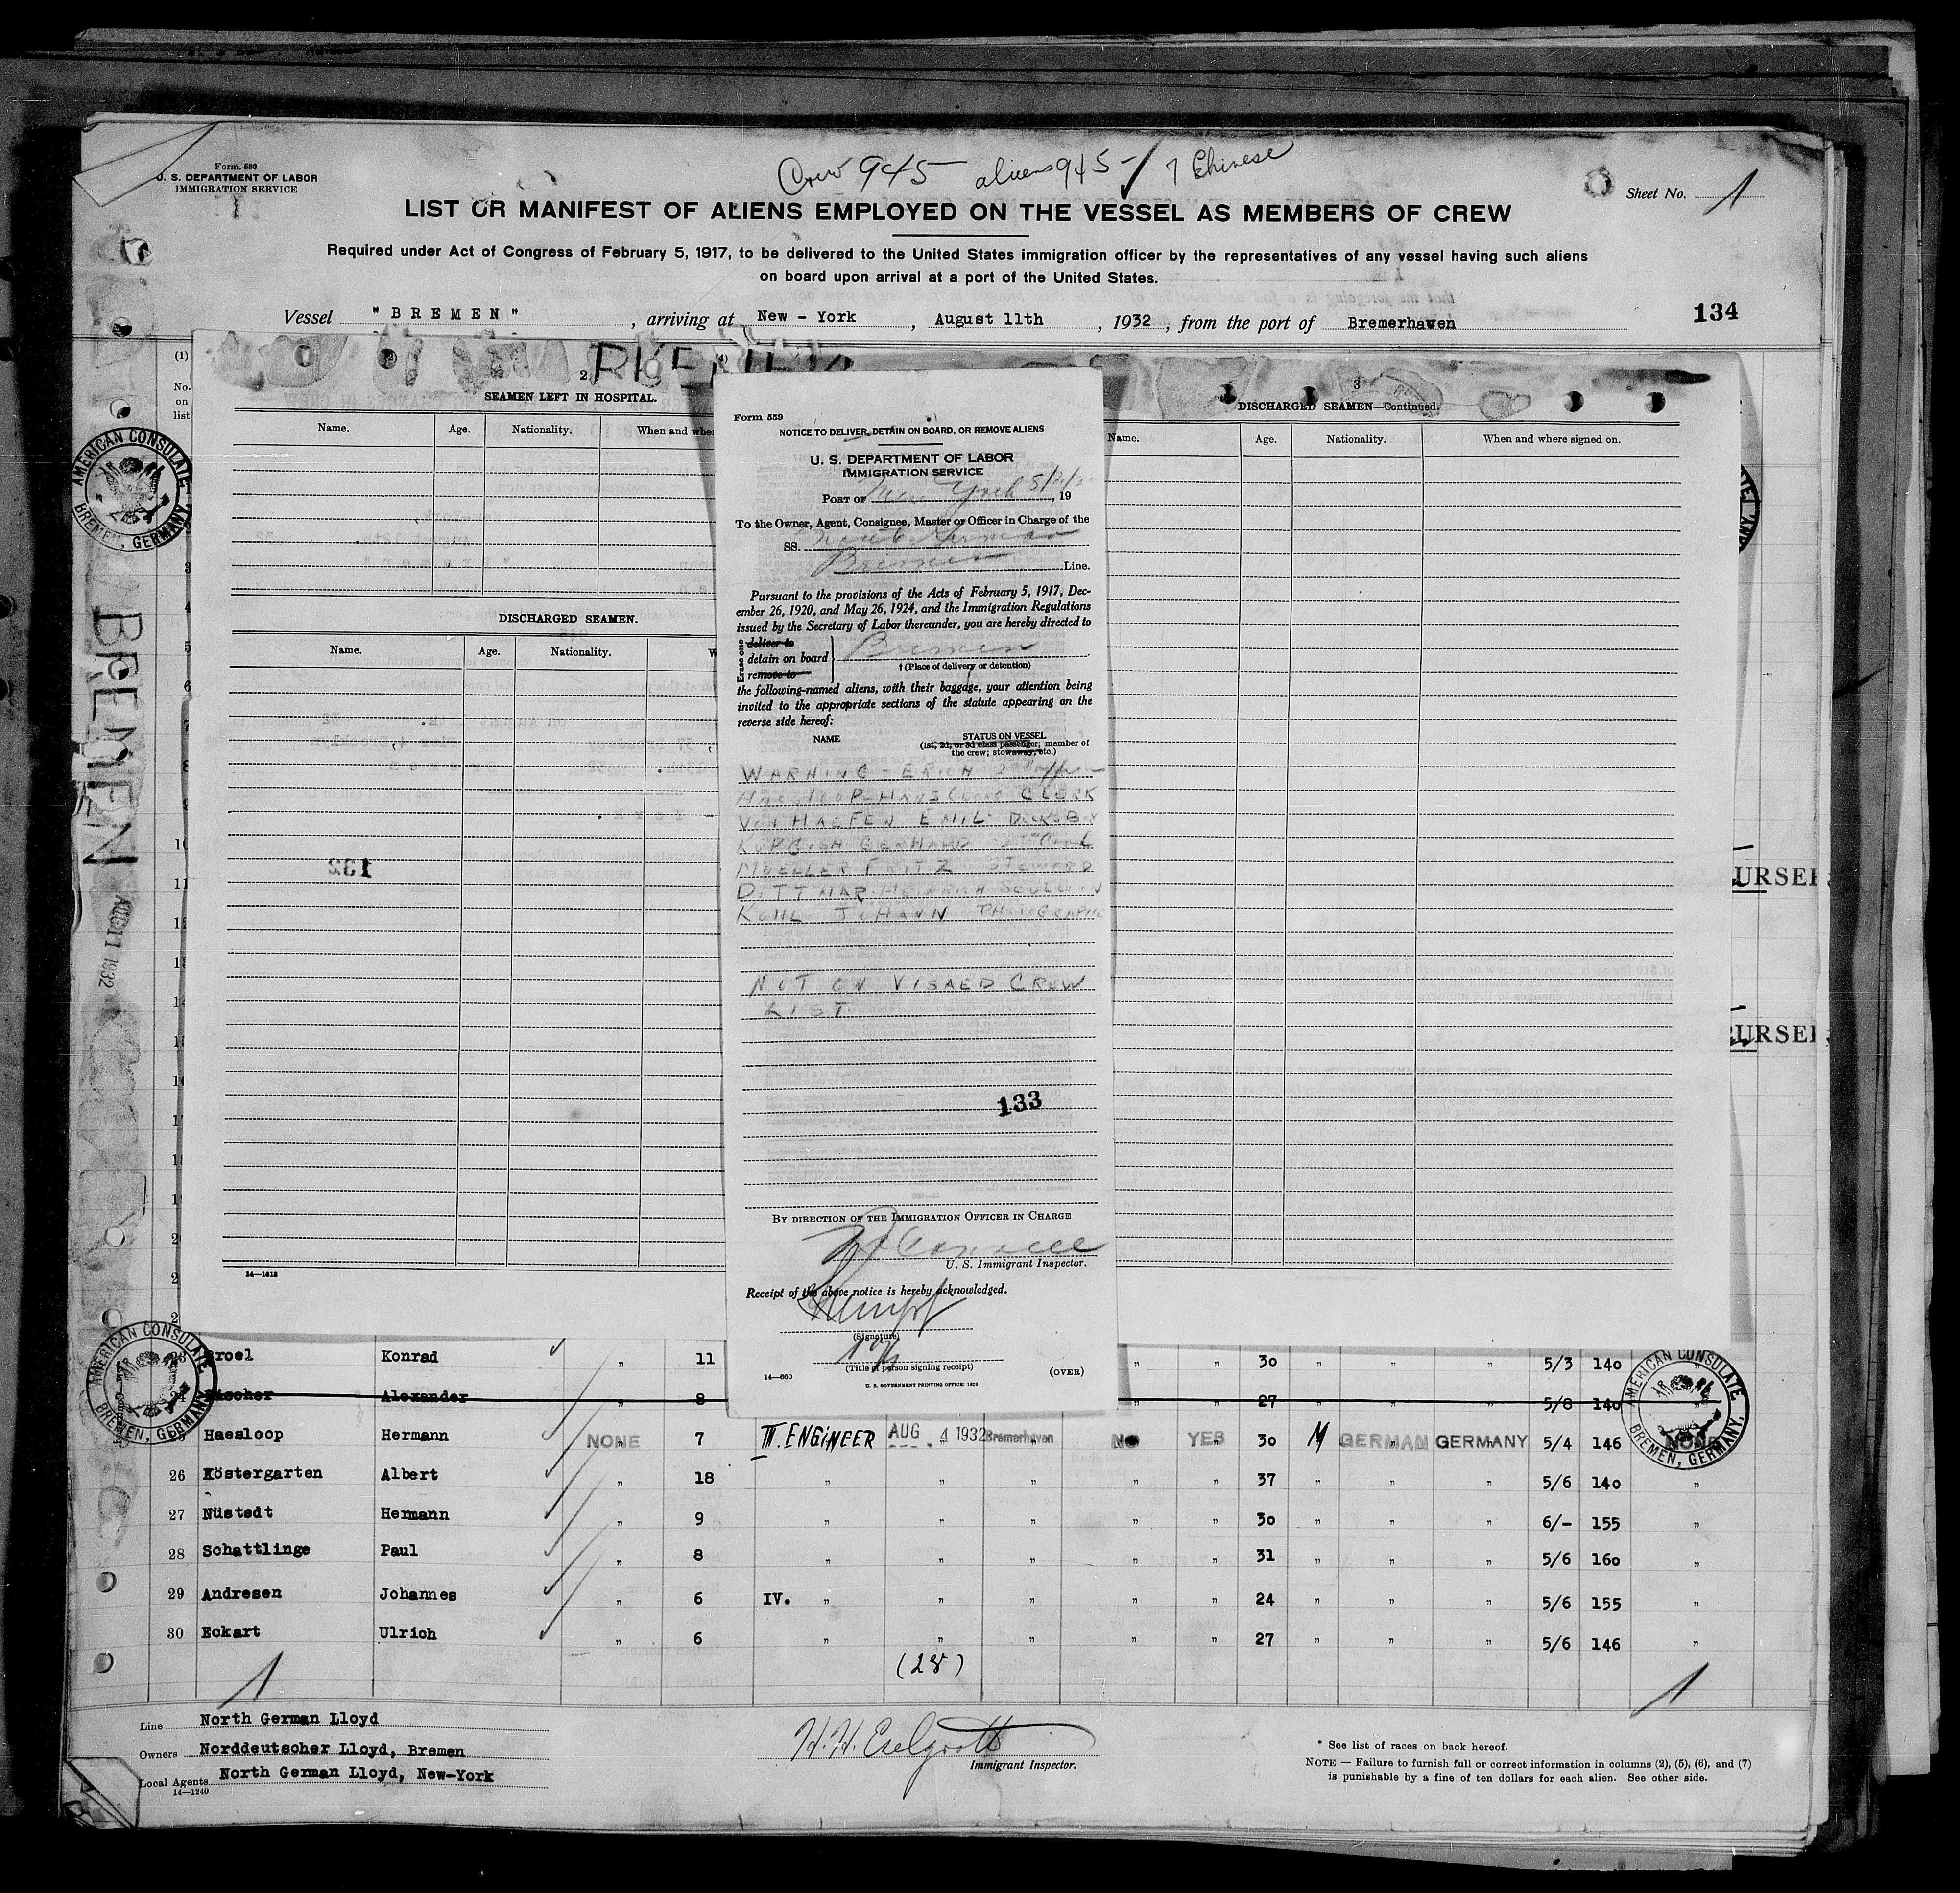 Form. 680
U. S. DEPARTMENT OF LABOR
IMMIGRATION SERVICE
Crew 945 aliens 945 - 7 Chinese
Sheet No. 1
LIST OR MANIFEST OF ALIENS EMPLOYED ON THE VESSEL AS MEMBERS OF CREW
Required under Act of Congress of February 5, 1917, to be delivered to the United States immigration officer by the representatives of any vessel having such aliens
on board upon arrival at a port of the United States.
Vessel "BREMEN", arriving at New - York, August 11th, 1932, from the port of Bremerhaven
134
(1)
No.
on
list
AMERICAN CONSULATE
BREMEN, GERMANY.
BREMEN
AUG 11 1932
2
SEAMEN LEFT IN HOSPITAL.
Name. Age. Nationality. When and whe
DISCHARGED SEAMEN.
Name. Age. Nationality. W
132
14—1613
3
DISCHARGED SEAMEN—Continued.
Name. Age. Nationality. When and where signed on.
URSER
URSER
Form 559
NOTICE TO DELIVER, DETAIN ON BOARD, OR REMOVE ALIENS
U. S. DEPARTMENT OF LABOR
IMMIGRATION SERVICE
PORT OF New York, 19
To the Owner, Agent, Consignee, Master or Officer in Charge of the
SS.
Bremen Line.
Pursuant to the provisions of the Acts of February 5, 1917, Dec-
ember 26, 1920, and May 26, 1924, and the Immigration Regulations
issued by the Secretary of Labor thereunder, you are hereby directed to
Erase one
deliver to
detain on board Bremen
remove to
† (Place of delivery or detention)
the following-named aliens, with their baggage, your attention being
invited to the appropriate sections of the statute appearing on the
reverse side hereof:
NAME STATUS ON VESSEL
(1st, 2d, or 3d class passenger; member of
the crew; stowaway, etc.)
WARNING - ERICH
HANS CLERK
VON HALFEN EMIL DECKSBOY
GERHARD
MOELLER FRITZ STEWARD
DITTMAR HEINRICH
KOHL JOHANN
NOT ON VISAED CREW
LIST.
133
BY DIRECTION OF THE IMMIGRATION OFFICER IN CHARGE
U. S. Immigrant Inspector.
Receipt of the above notice is hereby acknowledged.
(Signature)
(Title of person signing receipt)
14—660
(OVER)
U. S. GOVERNMENT PRINTING OFFICE: 1929
AMERICAN CONSULATE
BREMEN, GERMANY.
Konrad " 11 " " 30 " " " 5/3 140
Alexander " 8 " " 27 5/8 140 "
Haesloop Hermann NONE 7 III. ENGINEER AUG 4 1932 Bremerhaven NO YES 30 M GERMAN GERMANY 5/4 146 NONE
26 Köstergarten Albert " 18 " " " " " 37 " " " 5/6 140 "
27 Nüstedt Hermann " 9 " " " " " 30 " " " 6/- 155 "
28 Schattlinge Paul " 8 " " " " " 31 " " " 5/6 160 "
29 Andresen Johannes " 6 IV. " " " " " 24 " " " 5/6 155 "
30 Eckart Ulrich " 6 " " " " " 27 " " " 5/6 146 "
AMERICAN CONSULATE
BREMEN, GERMANY.
(28)
1
1
Line North German Lloyd
Owners Norddeutscher Lloyd, Bremen
Local Agents North German Lloyd, New-York
14—1240
Immigrant Inspector.
* See list of races on back hereof.
NOTE — Failure to furnish full or correct information in columns (2), (5), (6), and (7)
is punishable by a fine of ten dollars for each alien. See other side.